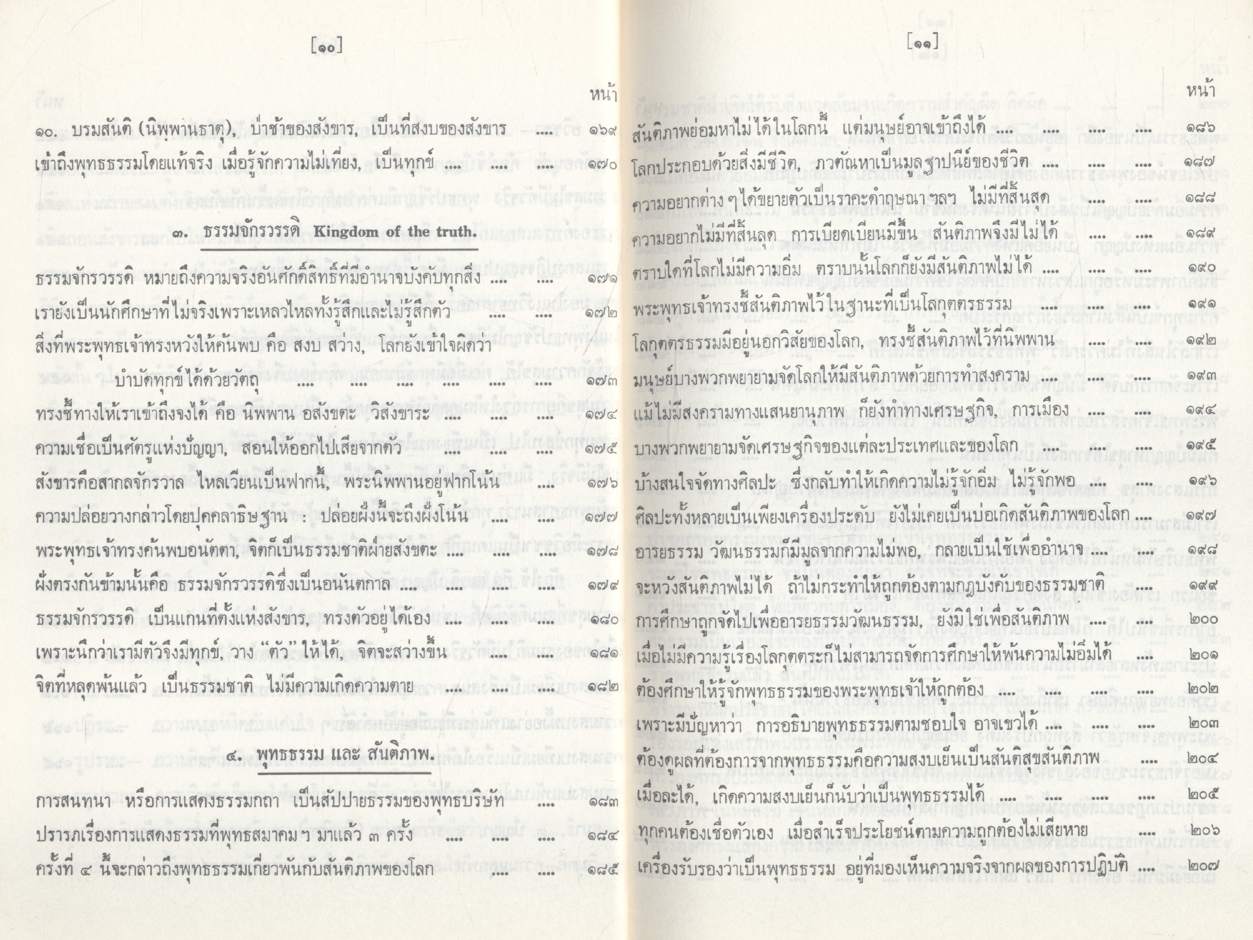 [๑๐]
หน้า
๑๐. บรมสันติ (นิพพานธาตุ), ป่าช้าของสังขาร, เป็นที่สงบของสังขาร .... ๑๖๙
เข้าถึงพุทธธรรมโดยแท้จริง เมื่อรู้จักความไม่เที่ยง, เป็นทุกข์ .... .... .... ๑๗๐
๓. ธรรมจักรวรรดิ Kingdom of the truth.
ธรรมจักรวรรดิ หมายถึงความจริงอันศักดิ์สิทธิ์ที่มีอำนาจบังคับทุกสิ่ง .... .... ๑๗๑
เรายังเป็นนักศึกษาที่ไม่จริงเพราะเหลวไหลทั้งรู้สึกและไม่รู้สึกตัว .... .... ๑๗๒
สิ่งที่พระพุทธเจ้าทรงหวังให้ค้นพบ คือ สงบ สว่าง, โลกยังเข้าใจผิดว่า
บำบัดทุกข์ได้ด้วยวัตถุ .... .... .... .... .... .... ๑๗๓
ทรงชี้ทางให้เราเข้าถึงจงได้ คือ นิพพาน อสังขตะ วิสังขาระ .... .... .... ๑๗๔
ความเชื่อเป็นศัตรูแห่งปัญญา, สอนให้ออกไปเสียจากตัว .... .... .... ๑๗๕
สังขารคือสากลจักรวาล ไหลเวียนเป็นฟากนี้, พระนิพพานอยู่ฟากโน้น .... ๑๗๖
ความปล่อยวางกล่าวโดยปุคคลาธิษฐาน : ปล่อยฝั่งนี้จะถึงฝั่งโน้น .... .... ๑๗๗
พระพุทธเจ้าทรงค้นพบอนัตตา, จิตก็เป็นธรรมชาติฝ่ายสังขตะ .... .... .... ๑๗๘
ฝั่งตรงกันข้ามนั้นคือ ธรรมจักรวรรดิซึ่งเป็นอนันตกาล .... .... .... .... ๑๗๙
ธรรมจักรวรรดิ เป็นแกนที่ตั้งแห่งสังขาร, ทรงตัวอยู่ได้เอง .... .... .... ๑๘๐
เพราะนึกว่าเรามีตัวจึงมีทุกข์, วาง "ตัว" ให้ได้, จิตจะสว่างขึ้น .... .... ๑๘๑
จิตที่หลุดพ้นแล้ว เป็นธรรมชาติ ไม่มีความเกิดความตาย .... .... .... ๑๘๒
๔. พุทธธรรม และ สันติภาพ.
การสนทนา หรือการแสดงธรรมกถา เป็นสัปปายธรรมของพุทธบริษัท .... ๑๘๓
ปรารภเรื่องการแสดงธรรมที่พุทธสมาคมฯ มาแล้ว ๓ ครั้ง .... .... .... ๑๘๔
ครั้งที่ ๔ นี้จะกล่าวถึงพุทธธรรมเกี่ยวพันกับสันติภาพของโลก .... .... ๑๘๕
[๑๑]
หน้า
สันติภาพย่อมหาไม่ได้ในโลกนี้ แต่มนุษย์อาจเข้าถึงได้ .... .... .... .... ๑๘๖
โลกประกอบด้วยสิ่งมีชีวิต, ภวตัณหาเป็นมูลฐาปนียของชีวิต .... .... .... ๑๘๗
ความอยากต่าง ๆ ได้ขยายตัวเป็นราคะดำฤษณา ฯลฯ ไม่มีที่สิ้นสุด .... ๑๘๘
ความอยากไม่มีที่สิ้นสุด การเบียดเบียนมีขึ้น สันติภาพจึงมีไม่ได้ .... .... ๑๘๙
ตราบใดที่โลกไม่มีความอิ่ม ตราบนั้นโลกก็ยังมีสันติภาพไม่ได้ .... .... .... ๑๙๐
พระพุทธเจ้าทรงชี้สันติภาพไว้ในฐานะที่เป็นโลกุตตรธรรม .... .... .... ๑๙๑
โลกุตตรธรรมมีอยู่นอกวิสัยของโลก, ทรงชี้สันติภาพไว้ที่นิพพาน .... .... ๑๙๒
มนุษย์บางพวกพยายามจัดโลกให้มีสันติภาพด้วยการทำสงคราม .... .... ๑๙๓
แม้ไม่มีสงครามทางแสนยานุภาพ ก็ยังทำทางเศรษฐกิจ, การเมือง .... .... ๑๙๔
บางพวกพยายามจัดเศรษฐกิจของแต่ละประเทศและของโลก .... .... ๑๙๕
บ้างสนใจจัดทางศิลปะ ซึ่งกลับทำให้เกิดความไม่รู้จักอิ่ม ไม่รู้จักพอ .... .... ๑๙๖
ศิลปะทั้งหลายเป็นเพียงเครื่องประดับ ยังไม่เคยเป็นบ่อเกิดสันติภาพของโลก .... ๑๙๗
อารยธรรม วัฒนธรรมก็มีมูลจากความไม่พอ, กลายเป็นใช้เพื่ออำนาจ .... .... ๑๙๘
จะหวังสันติภาพไม่ได้ ถ้าไม่กระทำให้ถูกต้องตามกฎบังคับของธรรมชาติ .... ๑๙๙
การศึกษาถูกจัดไปเพื่ออารยธรรมวัฒนธรรม, ยังมิใช่เพื่อสันติภาพ .... .... ๒๐๐
เมื่อไม่มีความรู้เรื่องโลกุตตระก็ไม่สามารถจัดการศึกษาให้พ้นความไม่อิ่มได้ .... ๒๐๑
ต้องศึกษาให้รู้จักพุทธธรรมของพระพุทธเจ้าให้ถูกต้อง .... .... .... .... ๒๐๒
เพราะมีปัญหาว่า การอธิบายพุทธธรรมตามชอบใจ อาจเขวได้ .... .... .... ๒๐๓
ต้องดูผลที่ต้องการจากพุทธธรรมคือความสงบเย็นเป็นสันติสุขสันติภาพ .... ๒๐๔
เมื่อละได้, เกิดความสงบเย็นก็นับว่าเป็นพุทธธรรมได้ .... .... .... ๒๐๕
ทุกคนต้องเชื่อตัวเอง เมื่อสำเร็จประโยชน์ตามความถูกต้องไม่เสียหาย .... ๒๐๖
เครื่องรับรองว่าเป็นพุทธธรรม อยู่ที่มองเห็นความจริงจากผลของการปฏิบัติ .... ๒๐๗